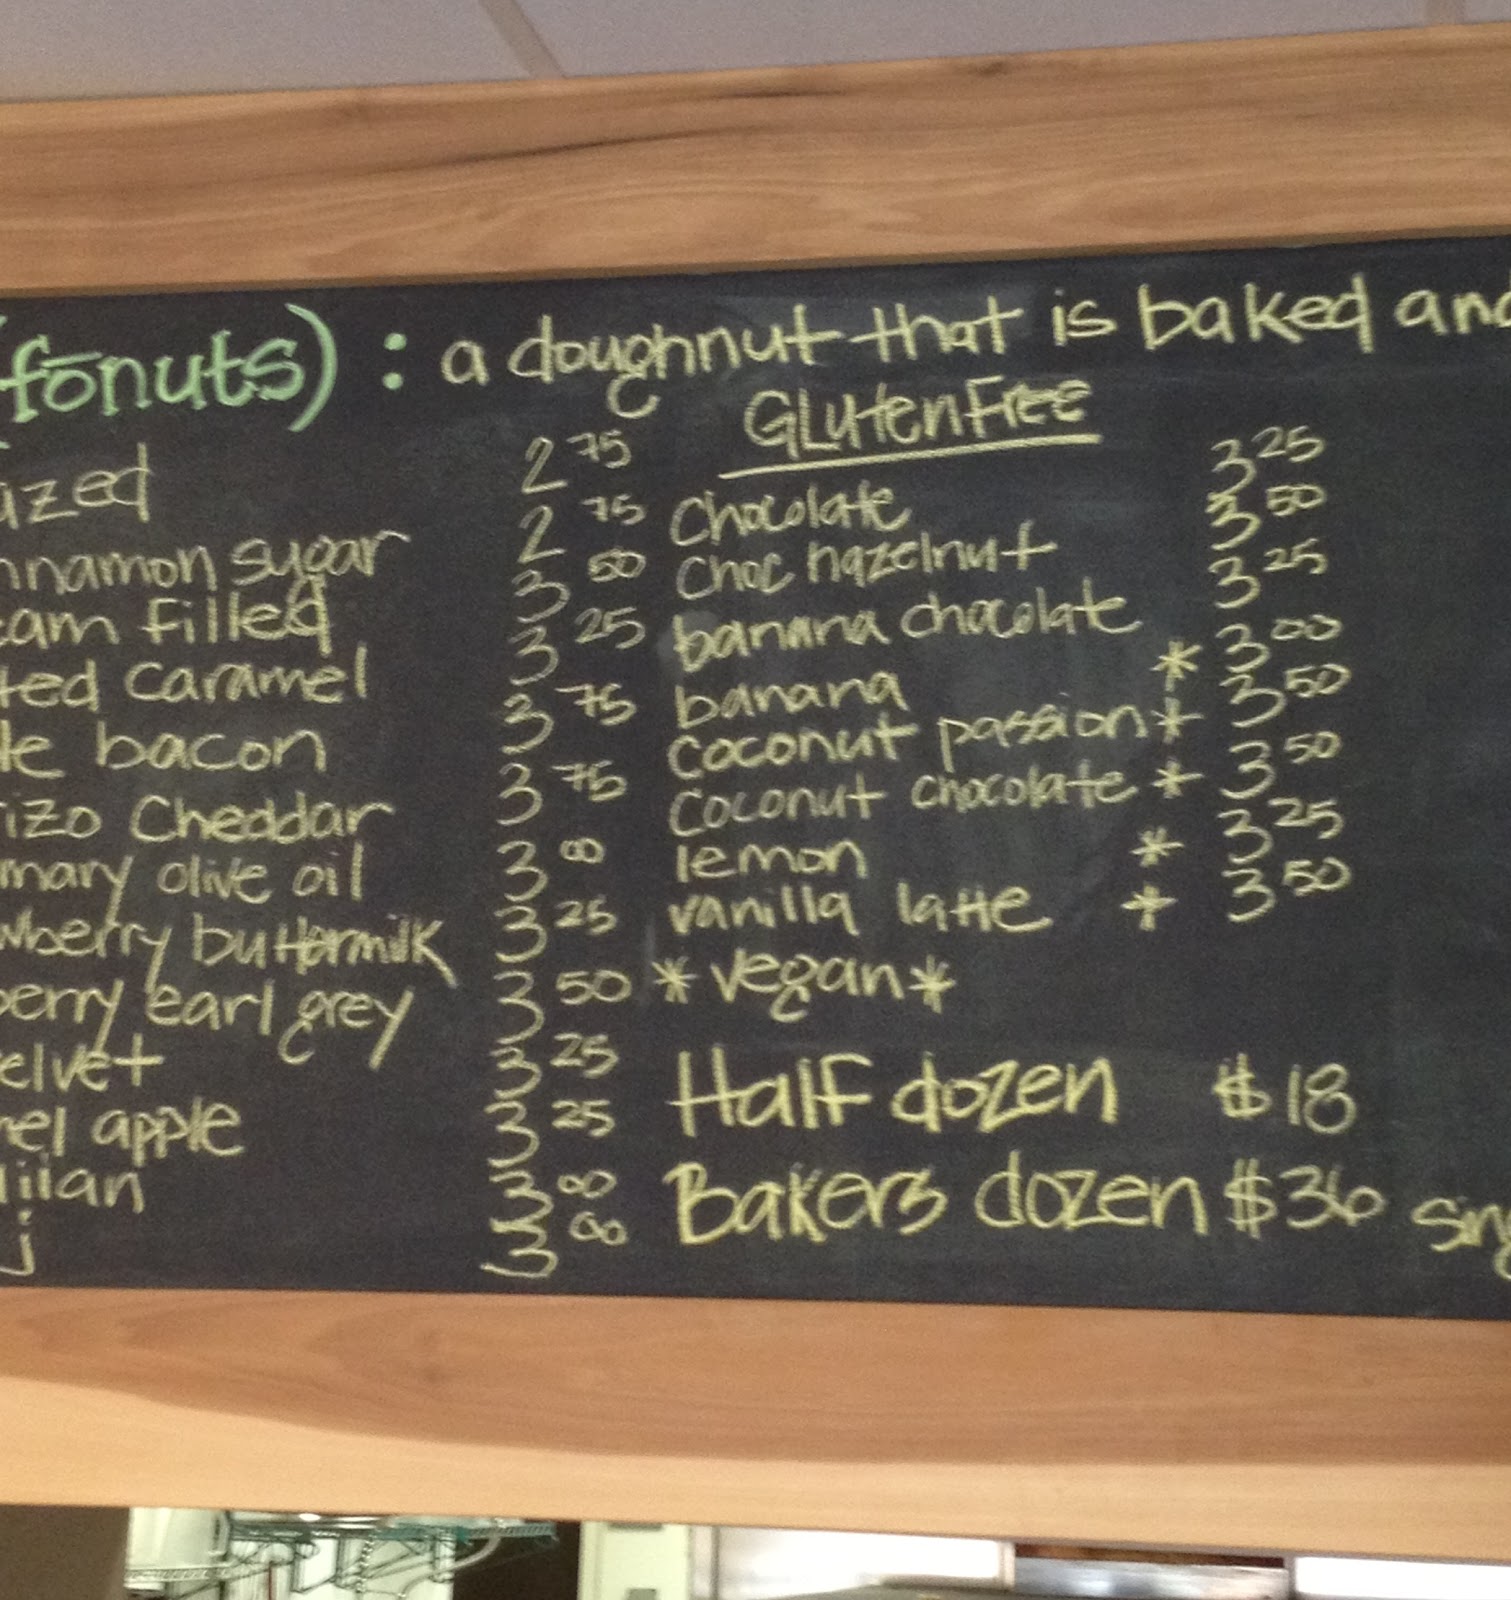 (fōnuts) : a doughnut that is baked and
GLUTENFREE
azed 2 75
nnamon sugar 2 75
eam filled 3 50
ted caramel 3 25
le bacon 3 75
izo Cheddar 3 75
mary olive oil 3 00
wberry buttermilk 3 25
berry earl grey 3 50
elvet 3 25
mel apple 3 25
ilan 3 00
j 3 00
Chocolate 3 25
choc hazelnut 3 50
banana chocolate 3 25
banana * 3 00
coconut passion * 3 50
coconut chocolate * 3 50
lemon * 3 25
vanilla latte * 3 50
* vegan *
Half dozen $18
Bakers dozen $36
Sing